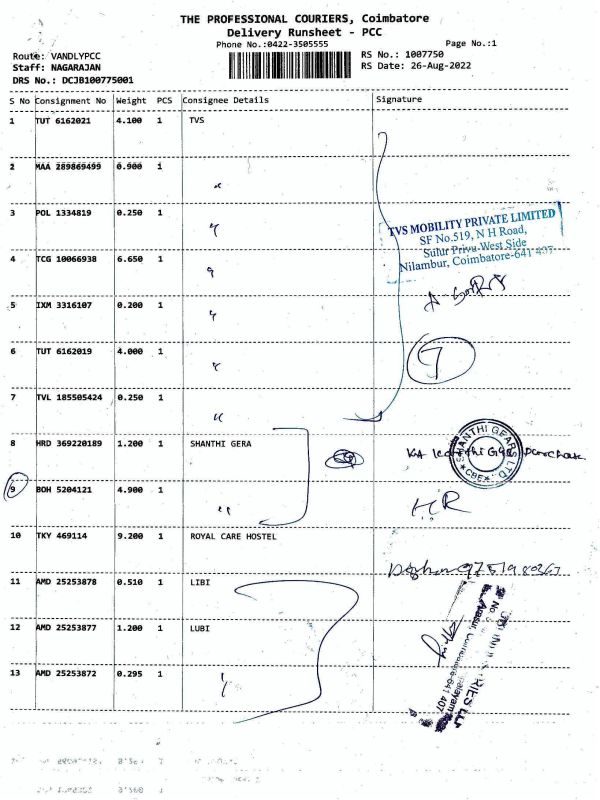 THE PROFESSIONAL COURIERS, Coimbatore
Delivery Runsheet - PCC
Phone No.:0422-3505555
Page No.:1
Route: VANDLYPCC
RS No.: 1007750
Staff: NAGARAJAN
RS Date: 26-Aug-2022
DRS No.: DCJB100775001
S No Consignment No Weight PCS Consignee Details Signature
1 TUT 6162021 4.100 1 TVS
2 MAA 289869499 0.900 1 "
3 POL 1334819 0.250 1 "
TVS MOBILITY PRIVATE LIMITED
SF No.519, N H Road,
Sulur Privu West Side
Nilambur, Coimbatore-641 407
4 TCG 10066938 6.650 1 "
5 IXM 3316107 0.200 1 "
6 TUT 6162019 4.000 1 "
7
7 TVL 185505424 0.250 1 "
8 HRD 369220189 1.200 1 SHANTHI GERA
SHANTHI GEARS LTD
CBE
9 BOH 5204121 4.900 1 "
HR
10 TKY 469114 9.200 1 ROYAL CARE HOSTEL
11 AMD 25253878 0.510 1 LIBI
12 AMD 25253877 1.200 1 LUBI
13 AMD 25253872 0.295 1 "